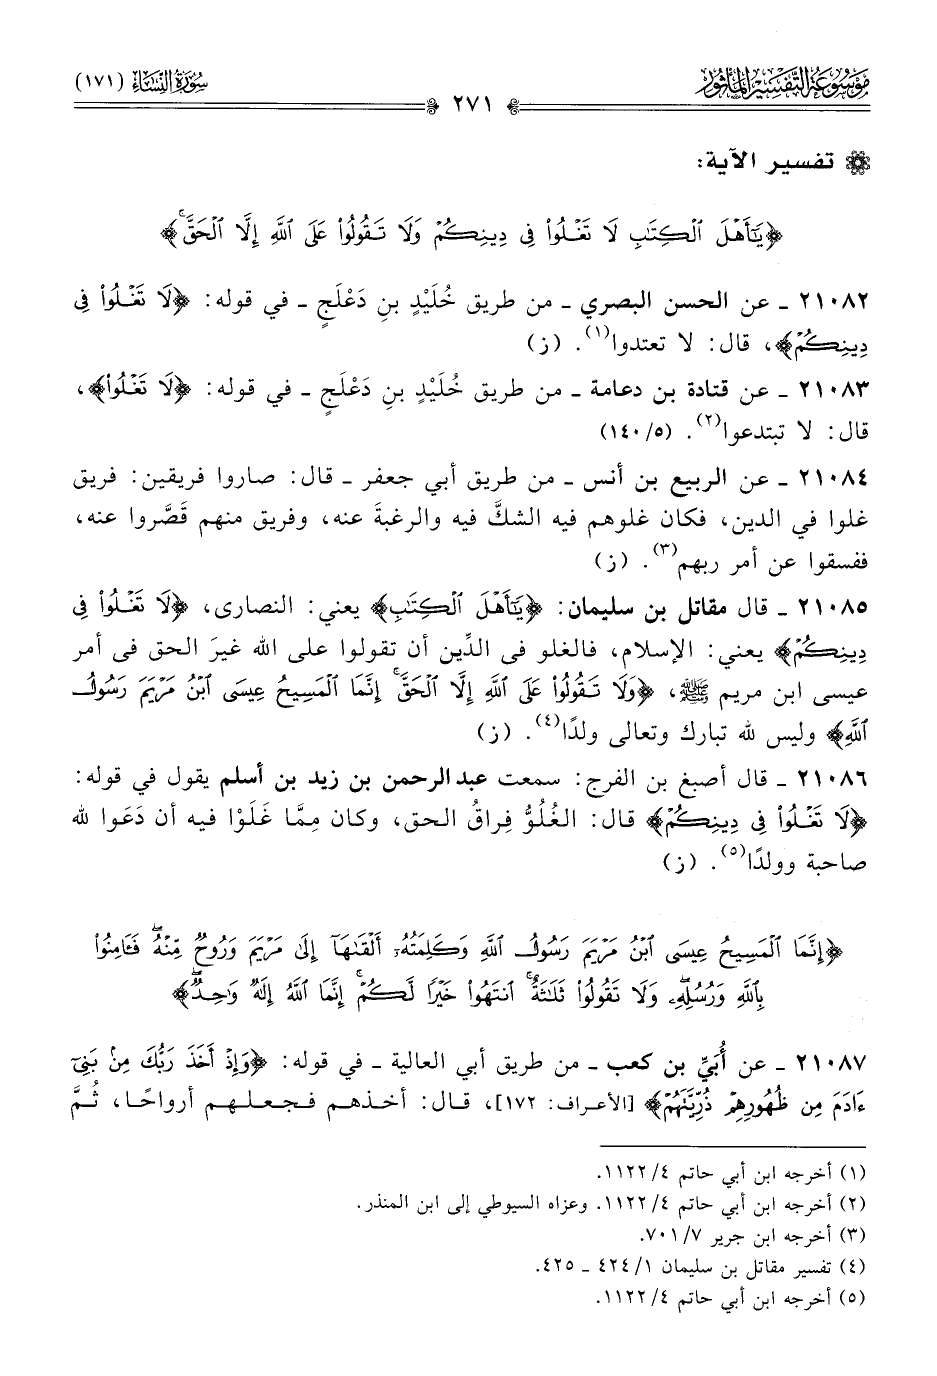 موسوعة التفسير المأثور
سورة النساء (١٧١)
٢٧١
تفسير الآية:
﴿يَٰٓأَهْلَ ٱلْكِتَٰبِ لَا تَغْلُوا۟ فِى دِينِكُمْ وَلَا تَقُولُوا۟ عَلَى ٱللَّهِ إِلَّا ٱلْحَقَّ ۚ﴾
٢١٠٨٢ ـ عن الحسن البصري ـ من طريق خُلَيْدٍ بنِ دَعْلَجٍ ـ في قوله: ﴿لَا تَغْلُوا۟ فِى
دِينِكُمْ﴾، قال: لا تعتدوا(١). (ز)
٢١٠٨٣ ـ عن قتادة بن دعامة ـ من طريق خُلَيْدٍ بنِ دَعْلَجٍ ـ في قوله: ﴿لَا تَغْلُوا۟﴾،
قال: لا تبتدعوا(٢). (١٤٠/٥)
٢١٠٨٤ ـ عن الربيع بن أنس ـ من طريق أبي جعفر ـ قال: صاروا فريقين: فريق
غلوا في الدين، فكان غلوهم فيه الشكَّ فيه والرغبةَ عنه، وفريق منهم قَصَّروا عنه،
ففسقوا عن أمر ربهم(٣). (ز)
٢١٠٨٥ ـ قال مقاتل بن سليمان: ﴿يَٰٓأَهْلَ ٱلْكِتَٰبِ﴾ يعني: النصارى، ﴿لَا تَغْلُوا۟ فِى
دِينِكُمْ﴾ يعني: الإسلام، فالغلو في الدِّين أن تقولوا على الله غيرَ الحق في أمر
عيسى ابن مريم ﷺ، ﴿وَلَا تَقُولُوا۟ عَلَى ٱللَّهِ إِلَّا ٱلْحَقَّ ۚ إِنَّمَا ٱلْمَسِيحُ عِيسَى ٱبْنُ مَرْيَمَ رَسُولُ
ٱللَّهِ﴾ وليس لله تبارك وتعالى ولدًا(٤). (ز)
٢١٠٨٦ ـ قال أصبغ بن الفرج: سمعت عبد الرحمن بن زيد بن أسلم يقول في قوله:
﴿لَا تَغْلُوا۟ فِى دِينِكُمْ﴾ قال: الغُلُوُّ فِراقُ الحق، وكان مِمَّا غَلَوْا فيه أن دَعَوا لله
صاحبة وولدًا(٥). (ز)
﴿إِنَّمَا ٱلْمَسِيحُ عِيسَى ٱبْنُ مَرْيَمَ رَسُولُ ٱللَّهِ وَكَلِمَتُهُۥٓ أَلْقَىٰهَآ إِلَىٰ مَرْيَمَ وَرُوحٌ مِّنْهُ ۖ فَـَٔامِنُوا۟
بِٱللَّهِ وَرُسُلِهِۦ ۖ وَلَا تَقُولُوا۟ ثَلَٰثَةٌ ۚ ٱنتَهُوا۟ خَيْرًا لَّكُمْ ۚ إِنَّمَا ٱللَّهُ إِلَٰهٌ وَٰحِدٌ ۖ﴾
٢١٠٨٧ ـ عن أُبَيِّ بن كعب ـ من طريق أبي العالية ـ في قوله: ﴿وَإِذْ أَخَذَ رَبُّكَ مِنۢ بَنِىٓ
ءَادَمَ مِن ظُهُورِهِمْ ذُرِّيَّتَهُمْ﴾ [الأعراف: ١٧٢]، قال: أخذهم فجعلهم أرواحًا، ثُمَّ
(١) أخرجه ابن أبي حاتم ١١٢٢/٤.
(٢) أخرجه ابن أبي حاتم ١١٢٢/٤. وعزاه السيوطي إلى ابن المنذر.
(٣) أخرجه ابن جرير ٧٠١/٧.
(٤) تفسير مقاتل بن سليمان ٤٢٤/١ ـ ٤٢٥.
(٥) أخرجه ابن أبي حاتم ١١٢٢/٤.